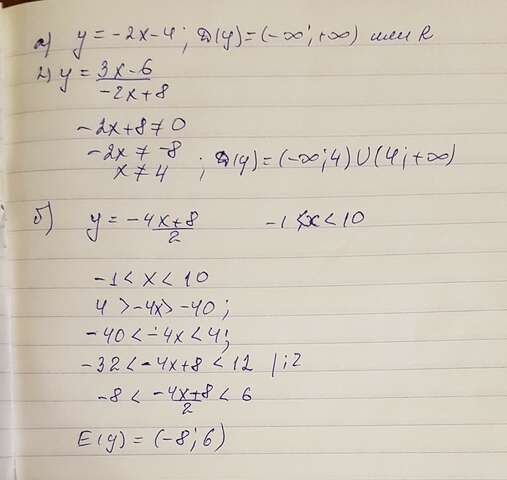 а) y = -2x-4; D(y) = (-∞; +∞) или R
2) y = 3x-6 / -2x+8
-2x+8 ≠ 0
-2x ≠ -8
x ≠ 4 ; D(y) = (-∞; 4) U (4; +∞)
б) y = -4x+8 / 2 -1 < x < 10
-1 < x < 10
4 > -4x > -40;
-40 < -4x < 4;
-32 < -4x+8 < 12 | :2
-8 < -4x+8 / 2 < 6
E(y) = (-8; 6)